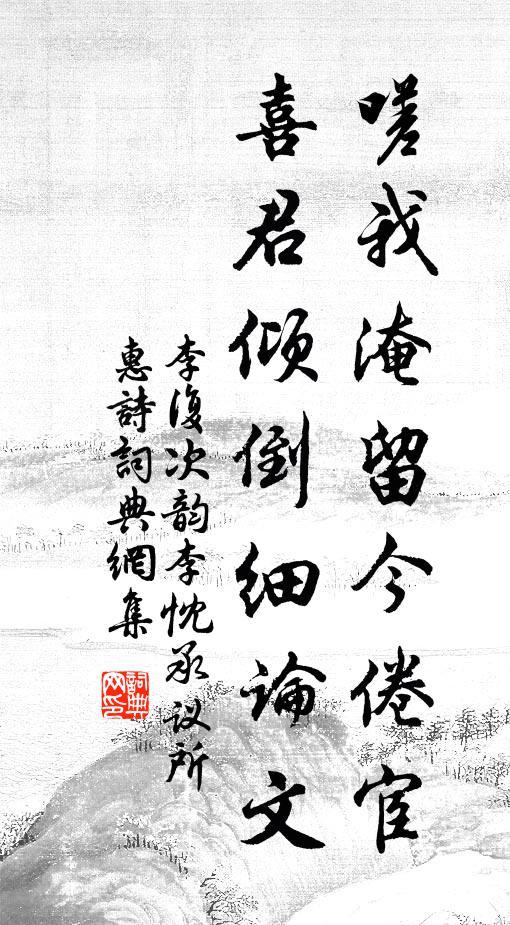 嗟我淹留今倦宦
喜君倾倒細論文
李復次韵李忱承议所
惠詩詞典網集
詞典
网印